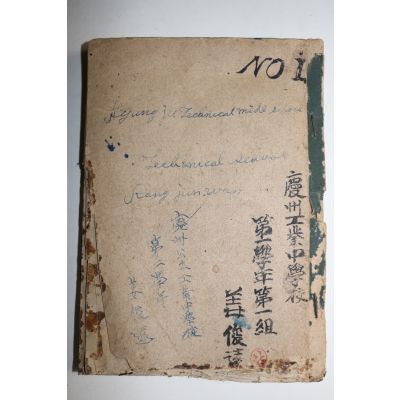 NO 1
Kyung ju Tecnical midle
Tecunical
Kang jun
慶州工業中學校
第一學年第一組
姜俊
慶州公立工業中學校
第一學年
姜俊